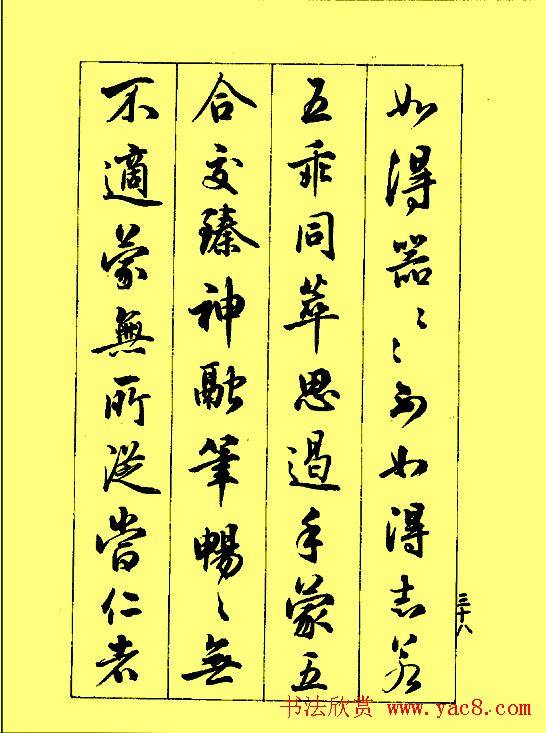 如得器〻〻不如得志若
五乖同萃思遏手蒙五
合交臻神融筆暢〻無
不適蒙無所從當仁者
三十八
书法欣赏 www.yac8.com